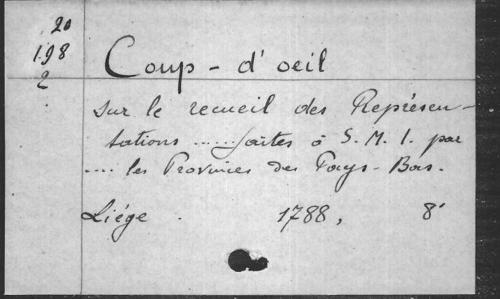 20
198
2
Coup-d'oeil
sur le recueil des Représen-
tations ...... faites à S. M. I. par
.... les Provinces des Pays-Bas.
Liége . 1788, 8°